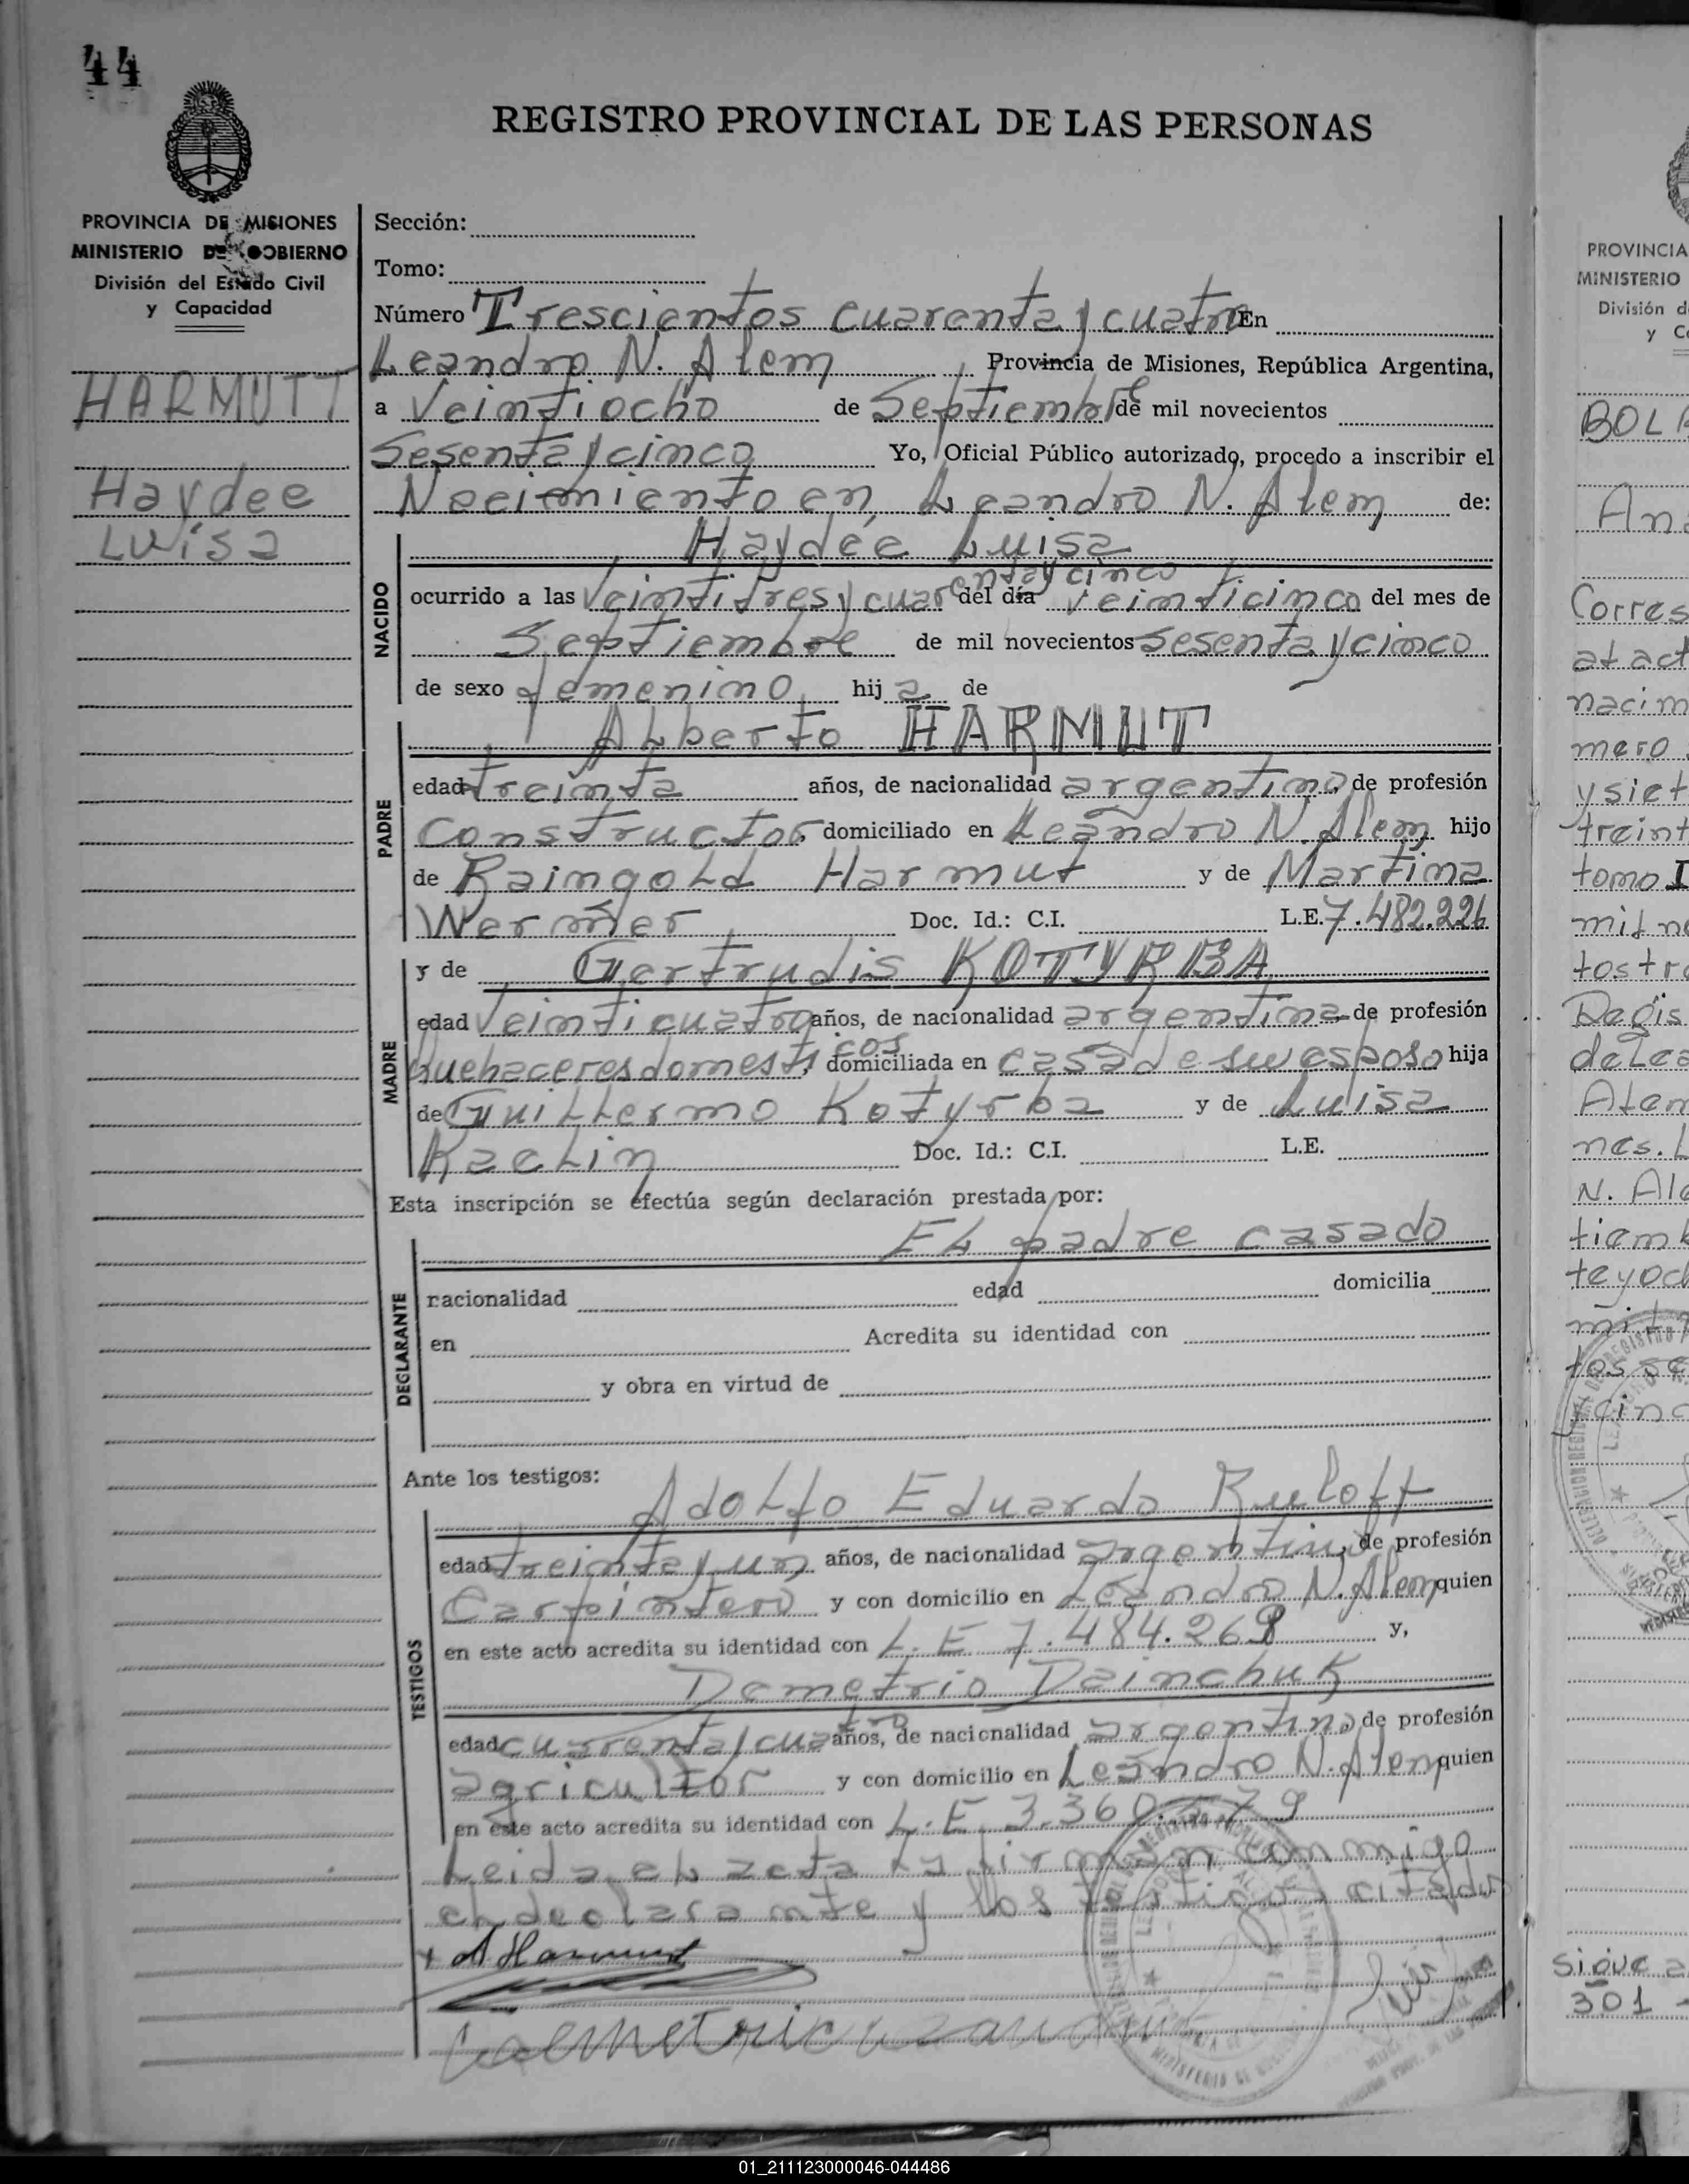 44
REGISTRO PROVINCIAL DE LAS PERSONAS
PROVINCIA DE MISIONES
MINISTERIO DE GOBIERNO
División del Estado Civil
y Capacidad
HARMUTT
Haydee
Luisa
Sección:
Tomo:
Número Trescientos cuarenta y cuatro En
Leandro N. Alem Provincia de Misiones, República Argentina,
a Veintiocho de Septiembre de mil novecientos
Sesenta y cinco Yo, Oficial Público autorizado, procedo a inscribir el
Necimiento en Leandro N. Alem de:
Haydée Luisa
NACIDO
ocurrido a las Veintitres y cuarenta y cinco del día veinticinco del mes de
Septiembre de mil novecientos sesenta y cinco
de sexo femenino hija de
Alberto HARMUT
PADRE
edad treinta años, de nacionalidad argentino de profesión
Constructor domiciliado en Leandro N. Alem hijo
de Raingold Harmut y de Martina
Werner Doc. Id.: C.I. L.E. 7.482.226
y de Gertrudis KOTYRBA
MADRE
edad Veinticuatro años, de nacionalidad argentina de profesión
Quehaceres domesticos domiciliada en casa de su esposo hija
de Guillermo Kotyrba y de Luisa
Kaelin Doc. Id.: C.I. L.E.
Esta inscripción se efectúa según declaración prestada por:
El padre casado
DECLARANTE
nacionalidad edad domicilia
en Acredita su identidad con
y obra en virtud de
Ante los testigos:
Adolfo Eduardo Ruloff
TESTIGOS
edad treinta y un años, de nacionalidad argentino de profesión
Carpintero y con domicilio en Leandro N. Alem quien
en este acto acredita su identidad con L.E 7.484.269 y,
Demetrio Dzinchuk
edad cuarenta y cuatro años, de nacionalidad argentino de profesión
agricultor y con domicilio en Leandro N. Alem quien
en este acto acredita su identidad con L.E 3.360.
Leida el acta la firman conmigo
el declarante y los testigos citados
A Harmut
PROVINCIA
MINISTERIO
División d
y C
BOL
An
Corres
at act
nacim
mero
y siet
treint
tomo I
mil n
tos tr
Regis
de Lea
Alem
nes. L
N. Ale
tiemb
te y oc
mil
tos se
y cinc
Sigue a
301
01_211123000046-044486